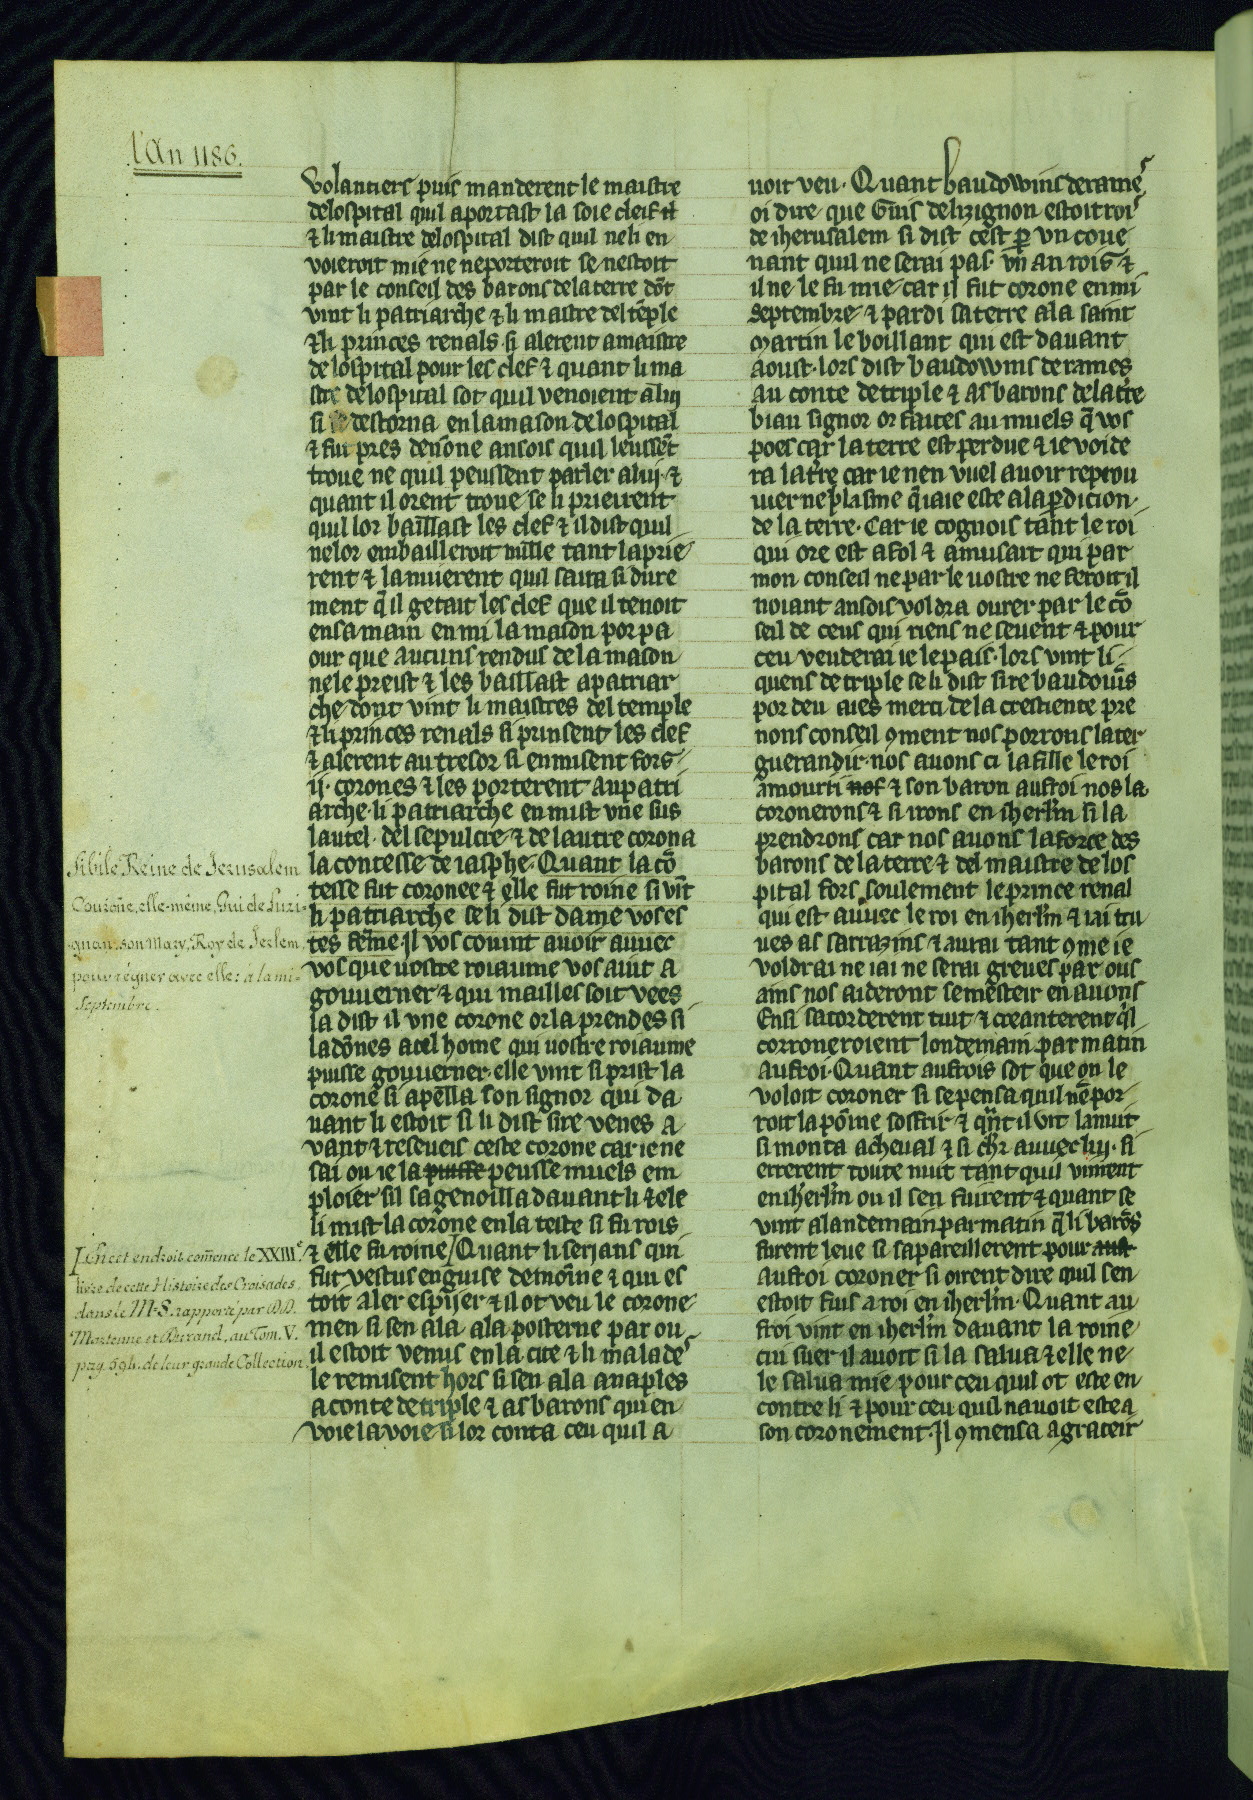 l'An 1186.
volantiers puis manderent le maistre
delospital quil aportast la soie cleif et
& li maistre delospital dist quil neli en
voieroit mie ne neporteroit se nestoit
par le conseil des barons delaterre dōt
vint li patriarche & li maistre del tēple
& li princes renals si alerent amaistre
de lospital pour les clef & quant li ma
stre delospital sot quil venoient a lui
si se destorna en la mason delospital
& fu pres denone ansois quil leussēt
troue ne quil peussent parler a lui· &
quant il orent troue se li prieirent
quil lor baillast les clef & il dist quil
nelor embailleroit mille tant la prie
rent & lanuierent quil saira si dure
ment q̄ il getait les clef que il tenoit
ensa main enmi la mason por pa
our que aucuns rendus de la mason
nele preist & les baillast a patriar
che dont vint li maistres del temple
& li princes renals si prinsent les clef
& alerent au tresor si en misent fors
ij· corones & les porterent au patri
arche· li patriarche en mist vne sus
lautel· del sepulcre & de lautre corona
la contesse de iasphe· Quant la cō
tesse fut coronee & elle fut roine si vīt
li patriarche se li dist dame vos es
tes feme il vos couint auoir auuec
vos que uostre roiaume vos aiut a
gouuerner & qui mailles soit vees
la dist il vne corone or la prendes si
la dōnes acel home qui uostre roiaume
puisse gouuerner· elle vint si prist la
corone si apella son signor qui da
uant li estoit si li dist sire venes a
vant & reseueis ceste corone car ie ne
sai ou ie la puisse peusse muels em
ploier sil sagenoilla dauant li & ele
li mist la corone en la teste si fu rois
& elle fu roine/ Quant li serjans qui
fut vestus enguise demoine & qui es
toit aler espijer & il ot veu le corone
men si sen ala ala posterne par ou
il estoit venus en la cite & li malades
le remisent hors si sen ala anaples
a conte de triple & as barons qui en
voie la voie si lor conta ceu quil a
uoit veu· Quant baudowins derames
oi dire que Guis delizignon estoit roi
de iherusalem si dist cest par vn coue
nant quil ne serai pas· vn an rois &
il ne le fu mie car il fut corone enmi
septembre & pardi saterre ala saint
Martin le boillant qui est dauant
aoust· lors dist baudowins derames
au conte detriple & as barons delatr̄e
biau signor or faites au muels q̄ vos
poes car la terre est perdue & ie voide
ra latr̄e car ie nen vuel auoir reprou
uier neplasme q̄ iaie este ala pdicion
de la terre· Car ie cognois tant le roi
qui ore est a fol & amusart qui par
mon conseil ne par le uostre ne feroit il
noiant ansois voldra ourer par le cō
seil de ceus qui riens ne seuent & pour
ceu veuderai ie le pais· lors vint li
quens de triple se li dist sire baudouīs
por deu aies merci de la crestiente pre
nons conseil 9ment nos porrons later
guerandir· nos auons ci la fille le roi
amourri nos & son baron aufroi nos la
coronerons & si irons en iherlm̄ si la
prendrons car nos auons la force des
barons de la terre & del maistre de los
pital fors soulement le prince renal
qui est auuec le roi en iherlm̄ & iai tru
ues as sarrazins & aurai tant 9me ie
voldrai ne iai ne serai greues par ous
ains nos aideront se mesteir en auons
Ensi sacorderent tuit & creanterent q̄l
corroneroient londemain par matin
aufroi· Quant aufrois sot que on le
voloit coroner si se pensa quil nē por
roit la pōine soffrir & q̄nt il vit la nuit
si monta acheual & si chr̄ auuec luj· si
errerent toute nuit tant quil vinrent
en iherlm̄ ou il sen fuirent & quant se
vint alandemain par matin q̄ li barōs
furent leue si sapareillerent pour auf
aufroi coroner si oirent dire quil sen
estoit fuis a roi en iherlm̄· Quant au
froi vint en iherlm̄ dauant la roine
cui suer il auoit si la salua & elle ne
le salua mie pour ceu quil ot este en
contre li & pour ceu quil nauoit este a
son coronement· Il 9mensa a grateir
Sibile Reine de Jerusalem
Couroñe, elle-même, Gui de Luzi-
gnan, son Mary, Roy de Jeelem,
pour régner avec elle: a la mi-
Septembre.
En cet endroit, comence le XXIIIe.
livre de cette Histoire des Croisades,
dans le M-S. rapporté par DD.
Martenne et Durand, au Tom. V.
pag. 594. de leur grande Collection.